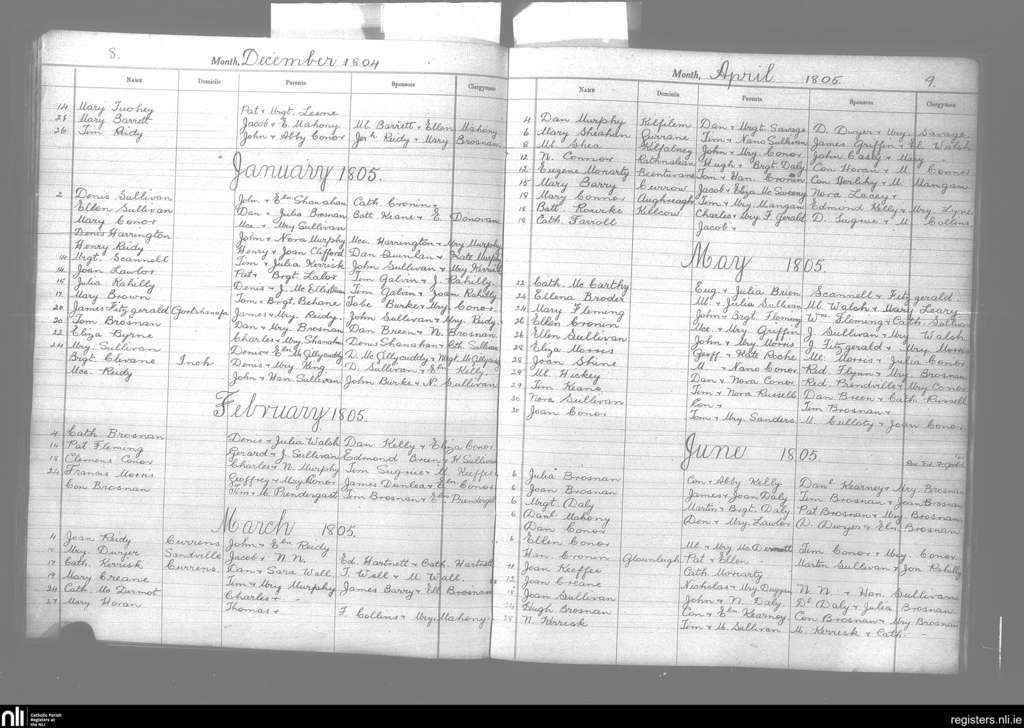 8.
Month, December 1804
NAME Domicile Parents Sponsors Clergyman
14 Mary Tuohey Pat + Mrgt. Leene
25 Mary Barrett Jacob + E. Mahony Ml. Barrett + Ellen Mahony
26 Tim Reidy John + Abby Conor Jnh. Reidy + Mary Brosnan
January 1805.
2 Denis Sullivan John + Eln Shanahan Cath. Cronin +
Ellen Sullivan Dan + Julia Brosnan Batt Keane + E. Donovan
Mary Conor Mce. + Mry Sullivan
Denis Harrington John + Nora Murphy Mce. Harrington + Mry Murphy
Henry Reidy Henry + Joan Clifford Dan Quinlan + Kate Murphy
Mrgt. Scannell Tim + Julia Kerrisk John Sullivan + Mry Kerrisk
Joan Lawlor Pat + Brgt Lalor Tim Galvin + J. Rahilly.
15 Julia Rahilly Denis + J. Tim Galvin + Joan Rahilly
17 Mary Brown Tom + Brgt. Behane Tobe Burke + Mry Conor.
20 James Fitzgerald James + Mry. Reidy. John Sullivan + Mry Reidy.
20 Tom Brosnan Dan + Mry. Brosnan Dan Breen + N. Brosnan
22 Eliza Byrne Charles + Mry. Shanahan Denis Shanahan + Cath Sullivan
24 Mry. Sullivan Denis + Eln McGillycuddy D. McGillycuddy + Mrgt. McGillycuddy
Brgt. Clivane Inch Denis + Mry King D. Sullivan + Eln Kelly.
Mce. Reidy John + Han. Sullivan John Burke + N. Sullivan
February 1805.
4 Cath. Brosnan Denis + Julia Walsh Dan Kelly + Eliza Conor
14 Pat Fleming Gerard + J. Sullivan Edmond Brien + H Sullivan
18 Clemens Conor Charles + N. Murphy Tim Sugrue + M. Keeffe
24 Francis Morris Geoffrey + Mary Conor James Dunlea + Eln Conor
Con Brosnan Tim + M. Prendergast Tim Brosnan + Eln Prendergast
March 1805.
4 Jean Reidy Currens John + Eln Reidy
11 Mry. Dwyer Sandville Jacob + N. N. Ed. Hartnett + Cath. Hartnett
17 Cath. Kerrisk Currens. Dan + Sara Wall T. Wall + M. Wall.
19 Mary Creane Tim + Mry Murphy James Barry + Ell Brosnan
24 Cath. McDermot Charles + -
27 Mary Horan Thomas + F Collins + Mry. Mahony
Month, April 1805. 9.
NAME Domicile Parents Sponsors Clergyman
4 Dan Murphy Kilfelim Dan + Mrgt Savage D. Dwyer + Mry. Savage
6 Mary Sheehan Currane Tim + Nano Sullivan James Griffin + El. Walsh
8 Ml. Shea Kilfalney John + Mry. Conor John Casey + Mary "
12 N. Connor Rathnaleen Hugh + Brgt. Daly Con Horan + M. Connor
12 Eugene Moriarty Tom + Han. Cronin Con Herlihy + M. Mangan
15 Mary Barry Currow Jacob + Eliza McSweeny Nora Lacey +
18 Mary Connor Aughreagh Tim + Mry. Mangan Edmond Kelly + Mry. Lyne
18 Batt. Rourke Kilcow Charles + Mry FGerald D. Sugrue + M. Collins
18 Cath. Farroll Jacob +
May 1805.
22 Cath McCarthy Eug. + Julia Brien Scannell + Fitzgerald.
24 Ellena Broder Ml + Julia Sullivan Ml. Walsh + Mary Leary
24 Mary Fleming John + Brgt Fleming Wm Fleming + Cath. Sullivan
26 Ellen Cronin Mce + Mry Griffin J. Sullivan + Mry. Walsh
26 Ellen Sullivan John + Mry Morris J. Fitzgerald + Mry Morris
28 Eliza Morris Geoff. + Kate Roche Ml. Morris + Julia Conor
28 Joan Shine M. + Nano Conor Red. Flynn + Mry. Brosnan
29 Ml. Hickey Dan + Nora Conor Red. Prendville + Mry Conor
29 Tim Keane Tim + Nora Russell Dan Breen + Cath. Russell
30 Nora Sullivan Con + Tim Brosnan +
30 Joan Conor Tom + Mry. Sanders M. Culloty + Joan Conor
June 1805.
6 Julia Brosnan Con + Abby Kelly Danl Kearney + Mry. Brosnan
6 Joan Brosnan James + Joan Daly Tim Brosnan + Joan Brosnan
6 Mrgt. Daly Martin + Brgt. Daly Pat Brosnan + Mry. Brosnan
6 Danl Mahony Den + Mry. Lawlor D. Dwyer + Eln Brosnan
Dan Conor
Ellen Conor Ml + Mry McDermott Tim Conor + Mry. Conor
Han. Cronin Glounleigh Pat + Ellen - Martin Sullivan + Jon Rahilly
11 Joan Keeffe Cath. Moriarty
12 Joan Creane Nicholas + Mry Dwyer N. N. + Han. Sullivan
15 Joan Sullivan John + N. Daly. Dl Daly + Julia Brosnan
24 Hugh Brosnan Con + Eln Kearney Con Brosnan + Mry Brosnan
28 N. Kerrisk Tim + M. Sullivan M. Kerrisk + Cath. -
nli
Catholic Parish
Registers at
the NLI
registers.nli.ie